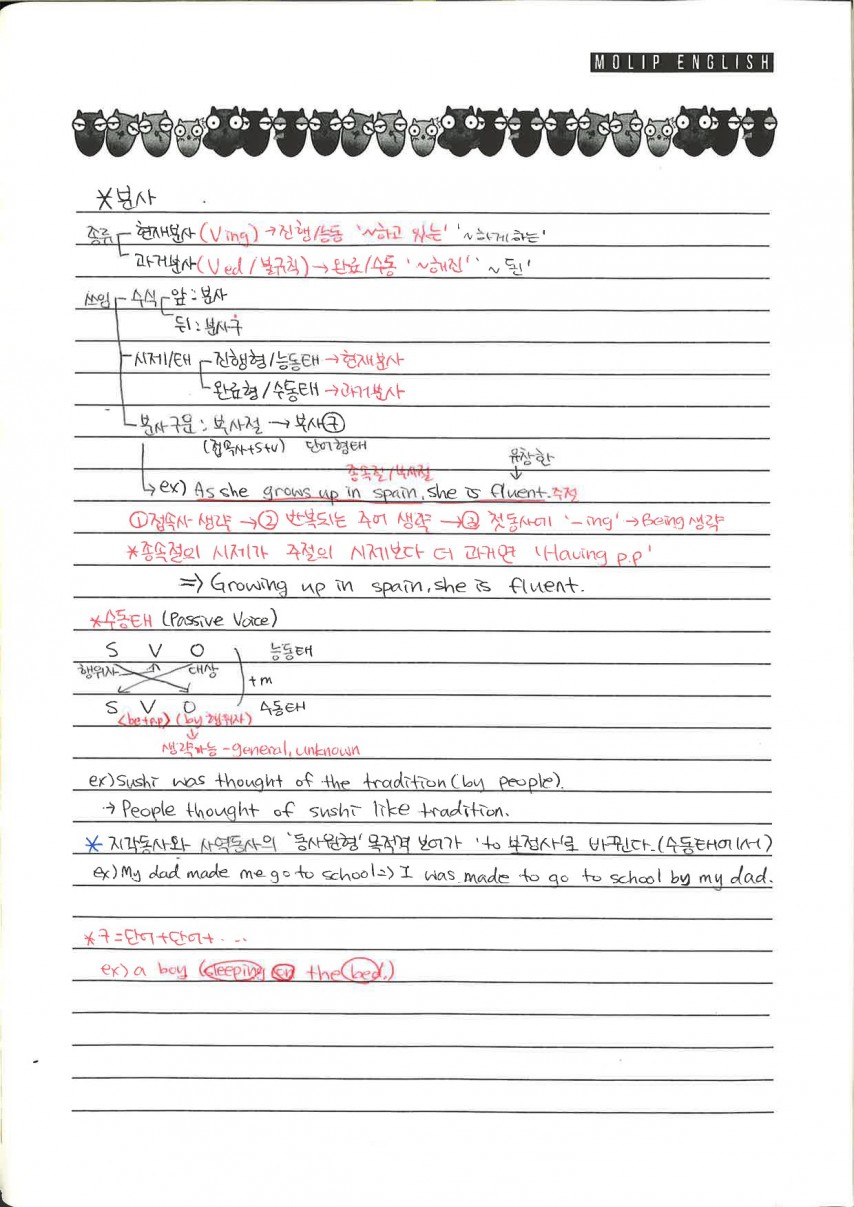 MOLIP ENGLISH
*분사
종류 현재분사(Ving)→진행/능동 '~하고 있는' '~하게 하는'
과거분사(Ved/불규칙)→완료/수동 '~해진' '~된'
쓰임 수식 앞:분사
뒤:분사구
시제/태 진행형/능동태→현재분사
완료형/수동태→과거분사
분사구문: 부사절→부사구
(접속사+S+V) 단어형태
유창한
종속절/부사절
ex) As she grows up in spain, she is fluent. 주절
①접속사 생략→② 반복되는 주어 생략→③ 첫동사에 '-ing'→Being생략
*종속절의 시제가 주절의 시제보다 더 과거면 'Having p.p'
⇒ Growing up in spain, she is fluent.
*수동태 (Passive Voice)
S V O 능동태
행위자 대상
+m
S V O 수동태
(be+p.p) (by 행위자)
생략가능-general, unknown
ex) Sushi was thought of the tradition (by people).
→ People thought of sushi like tradition.
* 지각동사와 사역동사의 '동사원형' 목적격 보어가 'to 부정사'로 바뀐다.(수동태에서)
ex) My dad made me go to school⇒ I was made to go to school by my dad.
*구=단어+단어+...
ex) a boy (sleeping on the bed.)